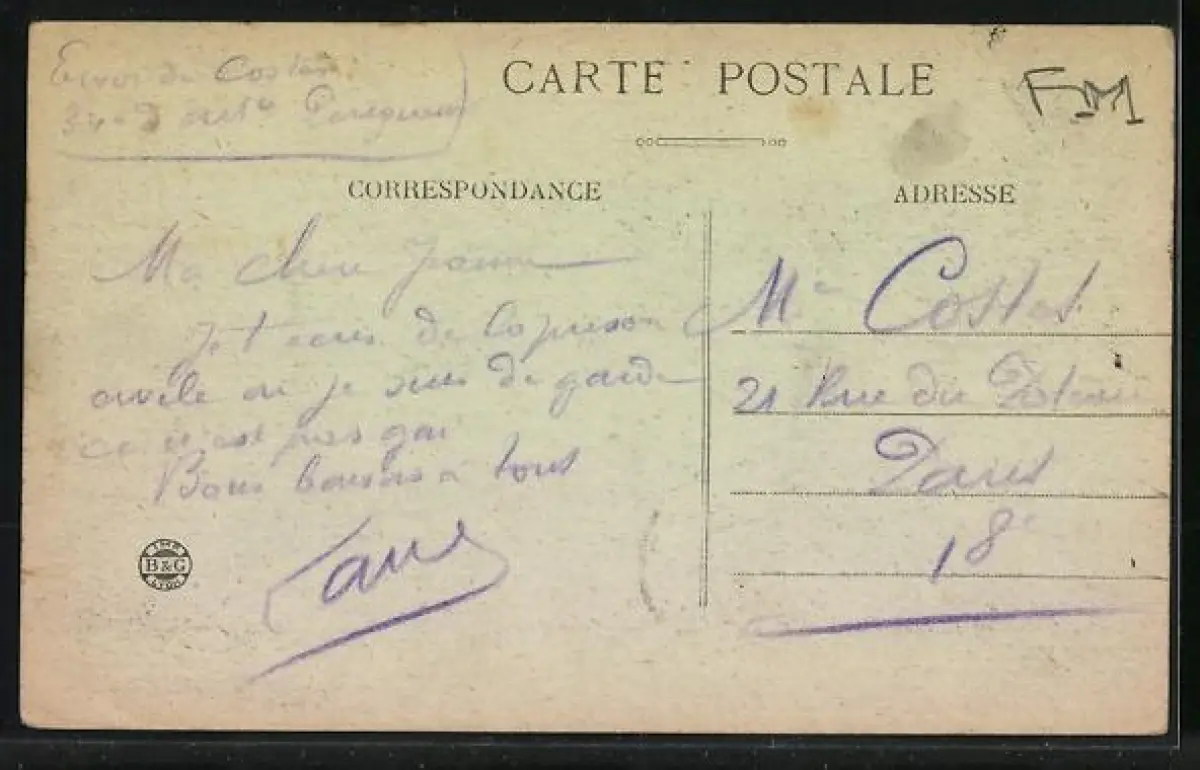 Envoi de Costes
34e d'artie Perigueux
CARTE POSTALE
FM
CORRESPONDANCE
ADRESSE
Ma chere Jeanne
Je t'ecris de la prison
civile ou je suis de garde
ce n'est pas gai
Bons baisers a tous
Me Costes
21 Rue du Poteau
Paris
18e
IMP
B&G
LYON